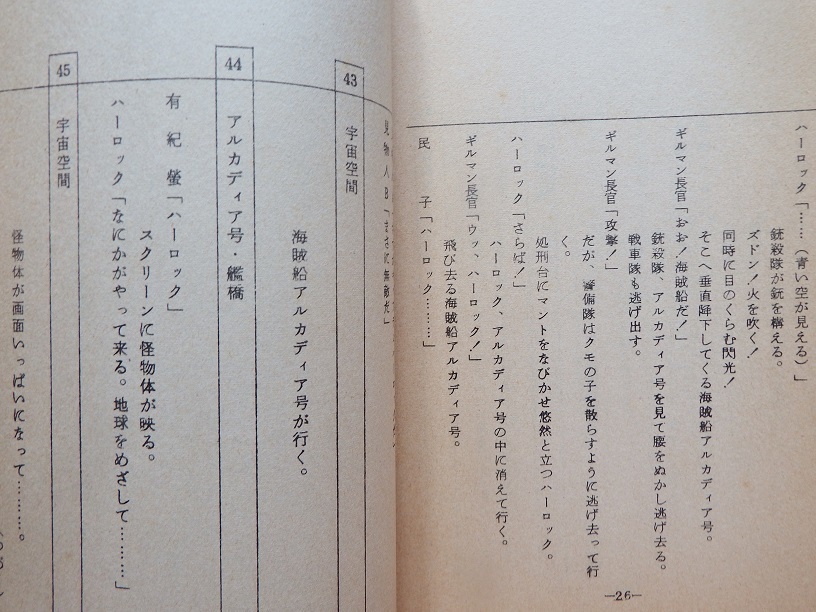 ハーロック「……（青い空が見える）」
銃殺隊が銃を構える。
ズドン！火を吹く！
同時に目のくらむ閃光！
そこへ垂直降下してくる海賊船アルカディア号。
ギルマン長官「おお！海賊船だ！」
銃殺隊、アルカディア号を見て腰をぬかし逃げ去る。
戦車隊も逃げ出す。
ギルマン長官「攻撃！」
だが、警備隊はクモの子を散らすように逃げ去って行
く。
処刑台にマントをなびかせ悠然と立つハーロック。
ハーロック「さらば！」
ハーロック、アルカディア号の中に消えて行く。
ギルマン長官「ウッ、ハーロック！」
飛び去る海賊船アルカディア号。
民　子「ハーロック………」
—26—
見物人B「まさに無敵だ」
43　宇宙空間
海賊船アルカディア号が行く。
44　アルカディア号・艦橋
有紀螢「ハーロック」
スクリーンに怪物体が映る。
ハーロック「なにかがやって来る。地球をめざして…………」
45　宇宙空間
怪物体が画面いっぱいになって………。